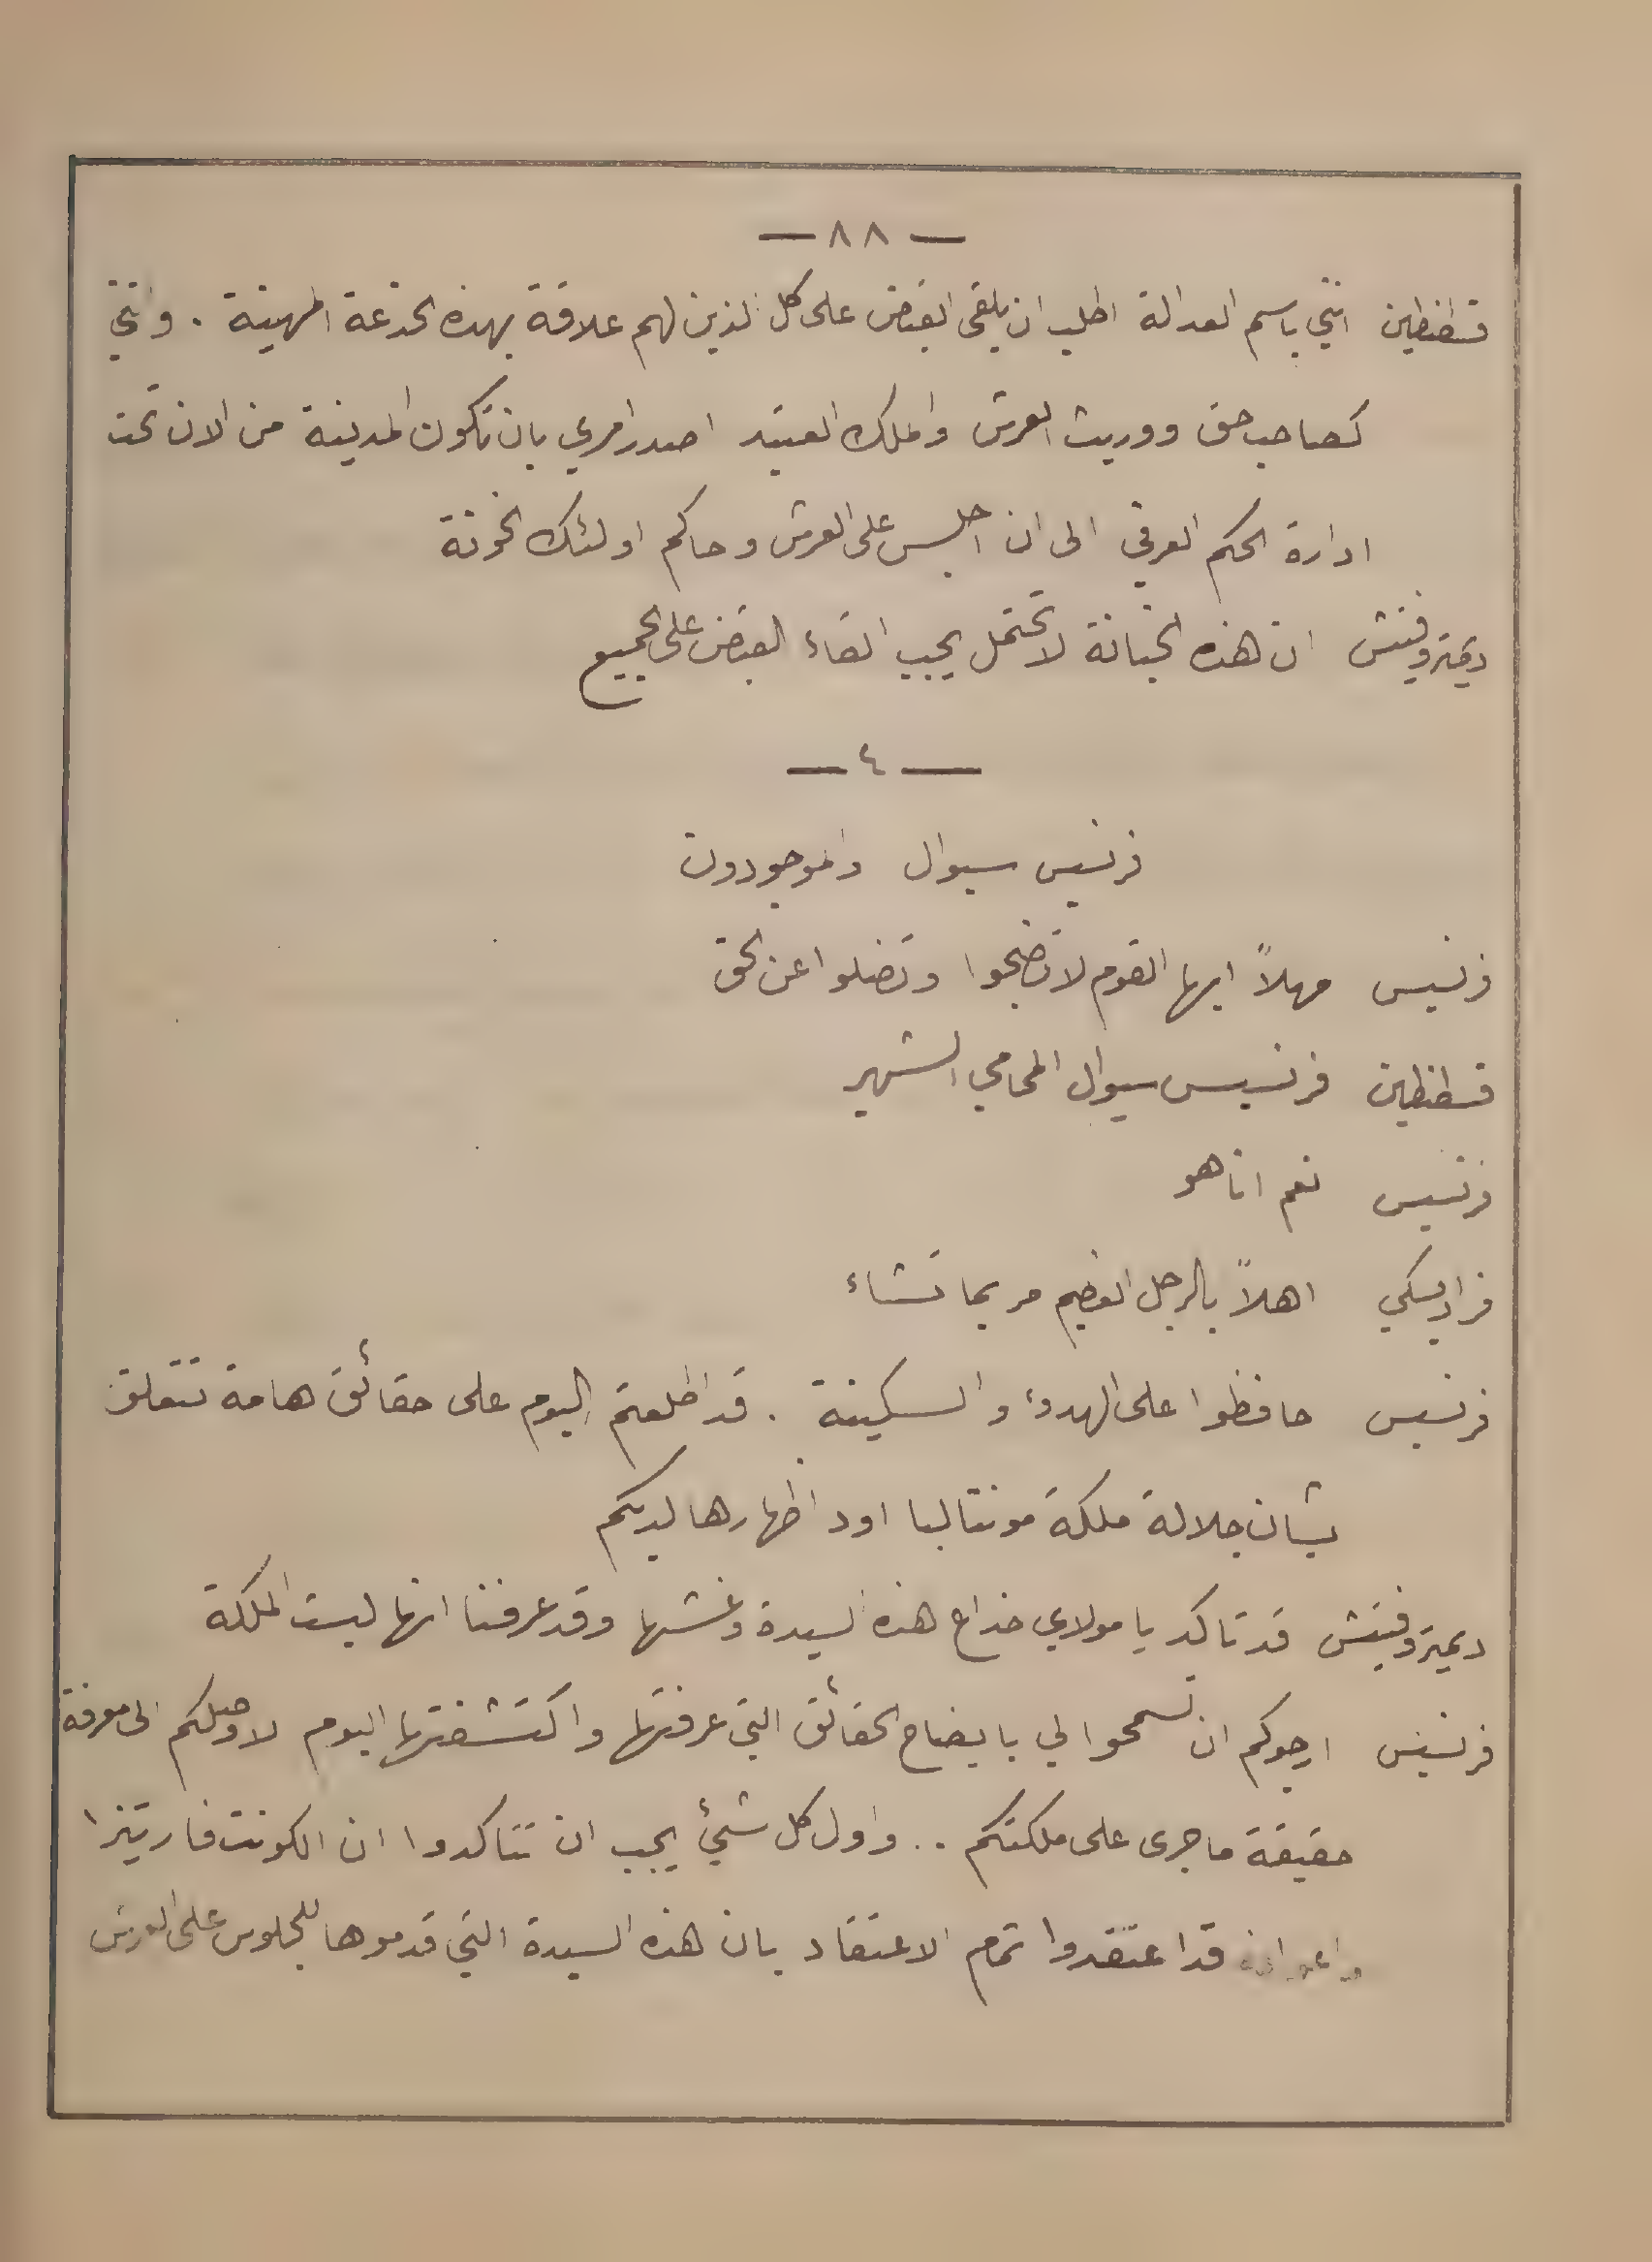 — ٨٨ —
قسطنطين انني باسم العدالة اطلب ان يلقى القبض على كل الذين لهم علاقة بهذه الخدعة المهينة . وانني
كصاحب حق ووريث العرش والملك العتيد اصدر امري بان تكون المدينة من الان تحت
ادارة الحكم العرفي الى ان اجلس على العرش وحاكم اولئك الخونة
ديمتروفيتش ان هذه الخيانة لا تحتمل يجب القاء القبض على الجميع
— ٤ —
فرنسيس سيوال والموجودون
فرنسيس مهلاً ايها القوم لا تضجوا وتضلوا عن الحق
قسطنطين فرنسيس سيوال المحامي الشهير
فرنسيس نعم انا هو
فراديسكي اهلاً بالرجل العظيم مر بما تشاء
فرنسيس حافظوا على الهدوء والسكينة . قد اطلعتم اليوم على حقائق هامة تتعلق
بشان جلالة ملكة مونتاليا اود اظهارها لديكم
ديمتروفيتش قد تاكد يا مولاي خداع هذه السيدة وغشها وقد عرفنا انها ليست الملكة
فرنسيس ارجوكم ان تسمحوا لي بايضاح الحقائق التي عرفتها واكتشفتها اليوم لاوصلكم الى معرفة
حقيقة ما جرى على ملكتكم .. واول كل شيئ يجب ان تتاكدوا ان الكونت فاريتزا
واعوانه قد اعتقدوا تمام الاعتقاد بان هذه السيدة التي قدموها للجلوس على العرش